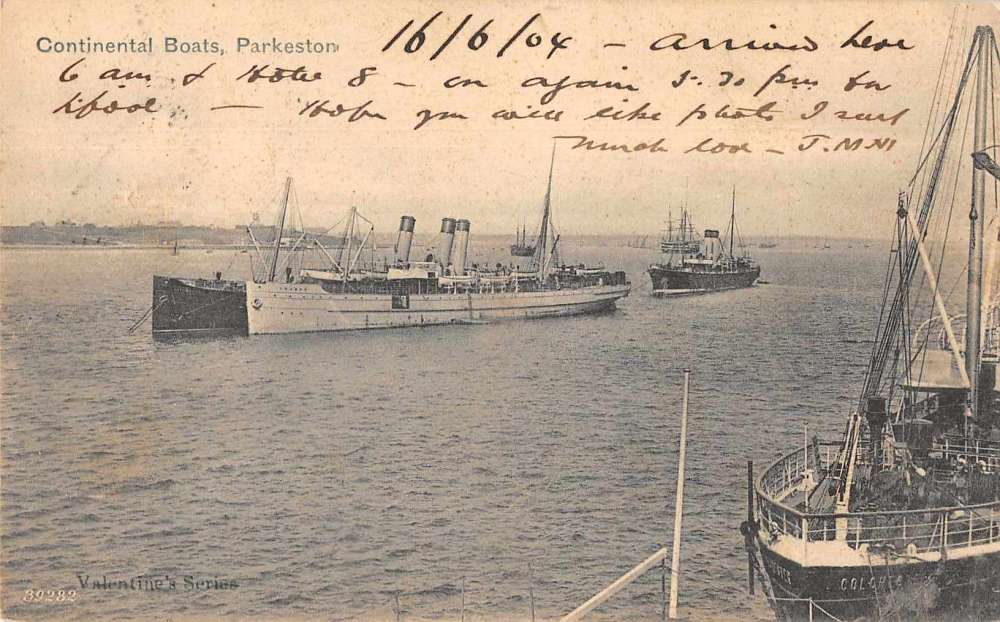 Continental Boats, Parkeston
16/6/04 – arrive here
6 am & Hotel 8 – on again 5.30 pm for
L'pool — Hope you will like photo I sent
Much love – J.M.N
Valentine's Series
39282